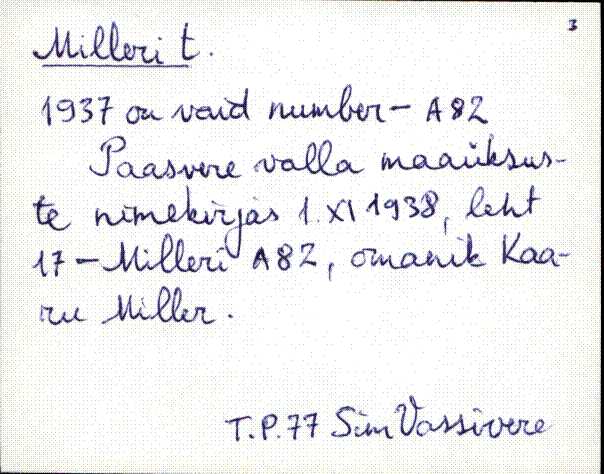 3
Milleri t.
1937 on vaid number- A82
Paasvere valla maaüksus-
te nimekirjas 1. XI 1938, leht
17 - Milleri A82, omanik Kaa-
ru Miller.
T.P.77 Sim Vassivere